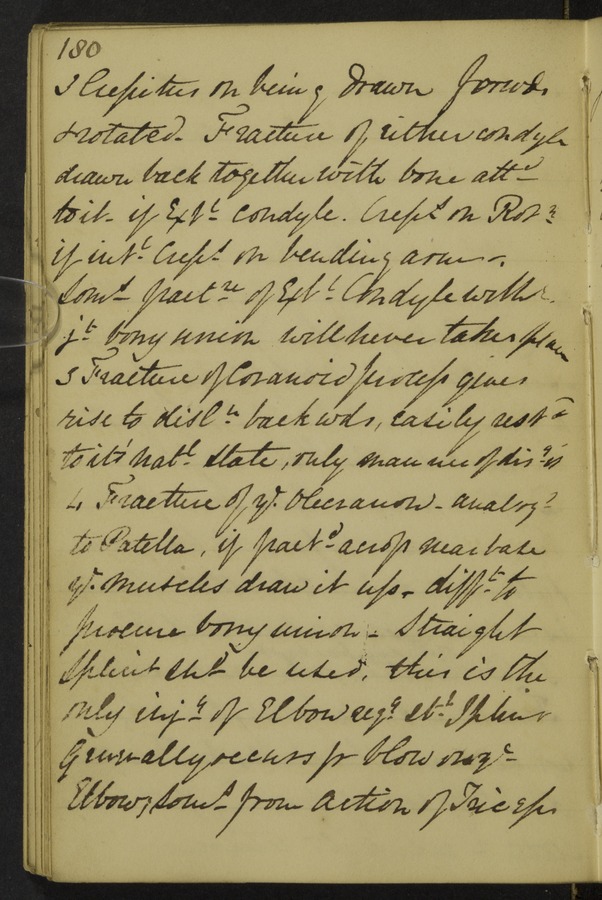 180
3 Crepitus on being drawn forwds
& rotated. Fracture of either condyle
drawn back together with bone attd
to it. if Ext. condyle. Crepts on Rotn
if intl Crepts on bending arm.
Somts fractre of Extl Condyle withn
jt bony union will never take place
3 Fracture of Coranoid process gives
rise to disln backwds, easily restd
to its natl state, only manner of
4 Fracture of ye Olecranon - analogs
to Patella, if fractd across near base
ye muscles draw it up - difft to
procure bony union - Straight
Splint shd be used, this is the
only injy of Elbow reqg stt Splint
Generally occurs fr blow on ye
Elbow, somts from action of Triceps